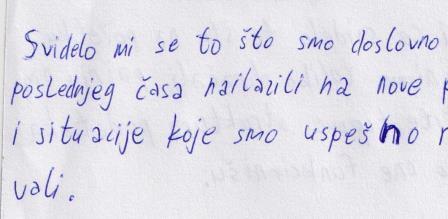 Svidelo mi se to što smo doslovno
poslednjeg časa nailazili na nove
i situacije koje smo uspešno
vali.